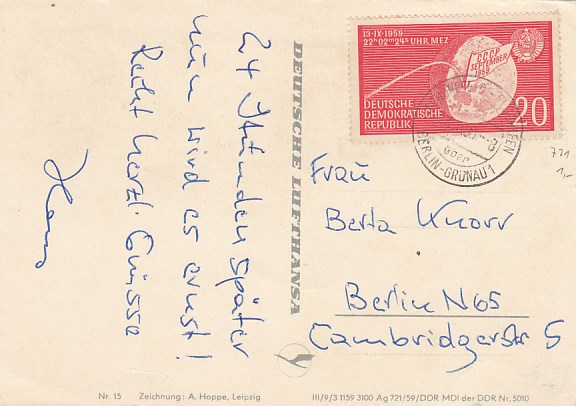 24 Stunden später
nun wird es ernst!
Recht herzl. Grüsse
Hans
DEUTSCHE LUFTHANSA
13·IX·1959
22h 02m 24s UHR MEZ
CCCP
SEPTEMBER
1959
DEUTSCHE
DEMOKRATISCHE
REPUBLIK
20
BERLIN-GRÜNAU 1
721
1,-
Frau
Berta Knorr
Berlin N65
Cambridgerstr 5
Nr. 15 Zeichnung: A. Hoppe, Leipzig
III/9/3 1159 3100 Ag 721/59/DDR MDI der DDR Nr. 5010